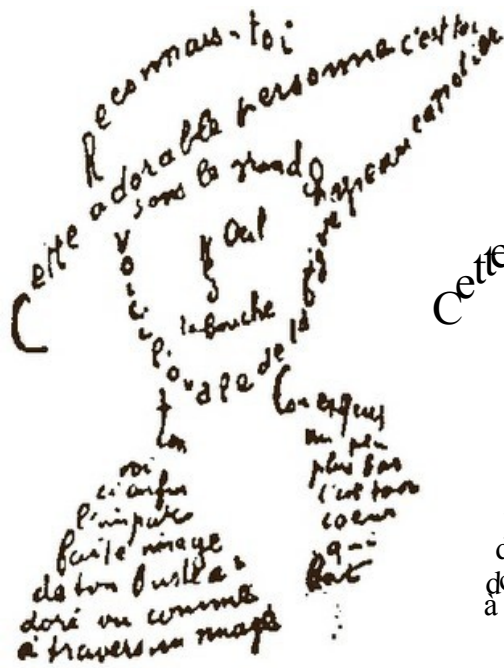 Reconnais-toi
Cette adorable personne c'est toi
sous le grand chapeau canotier
Oeil
la bouche
Voici l'ovale de ta figure
ton
Cou exquis
voi
ci enfin
l'impar
faite image
de ton buste a
doré vu comme
à travers un nuage
un peu
plus bas
c'est ton
coeur
qui
bat
Cette
à